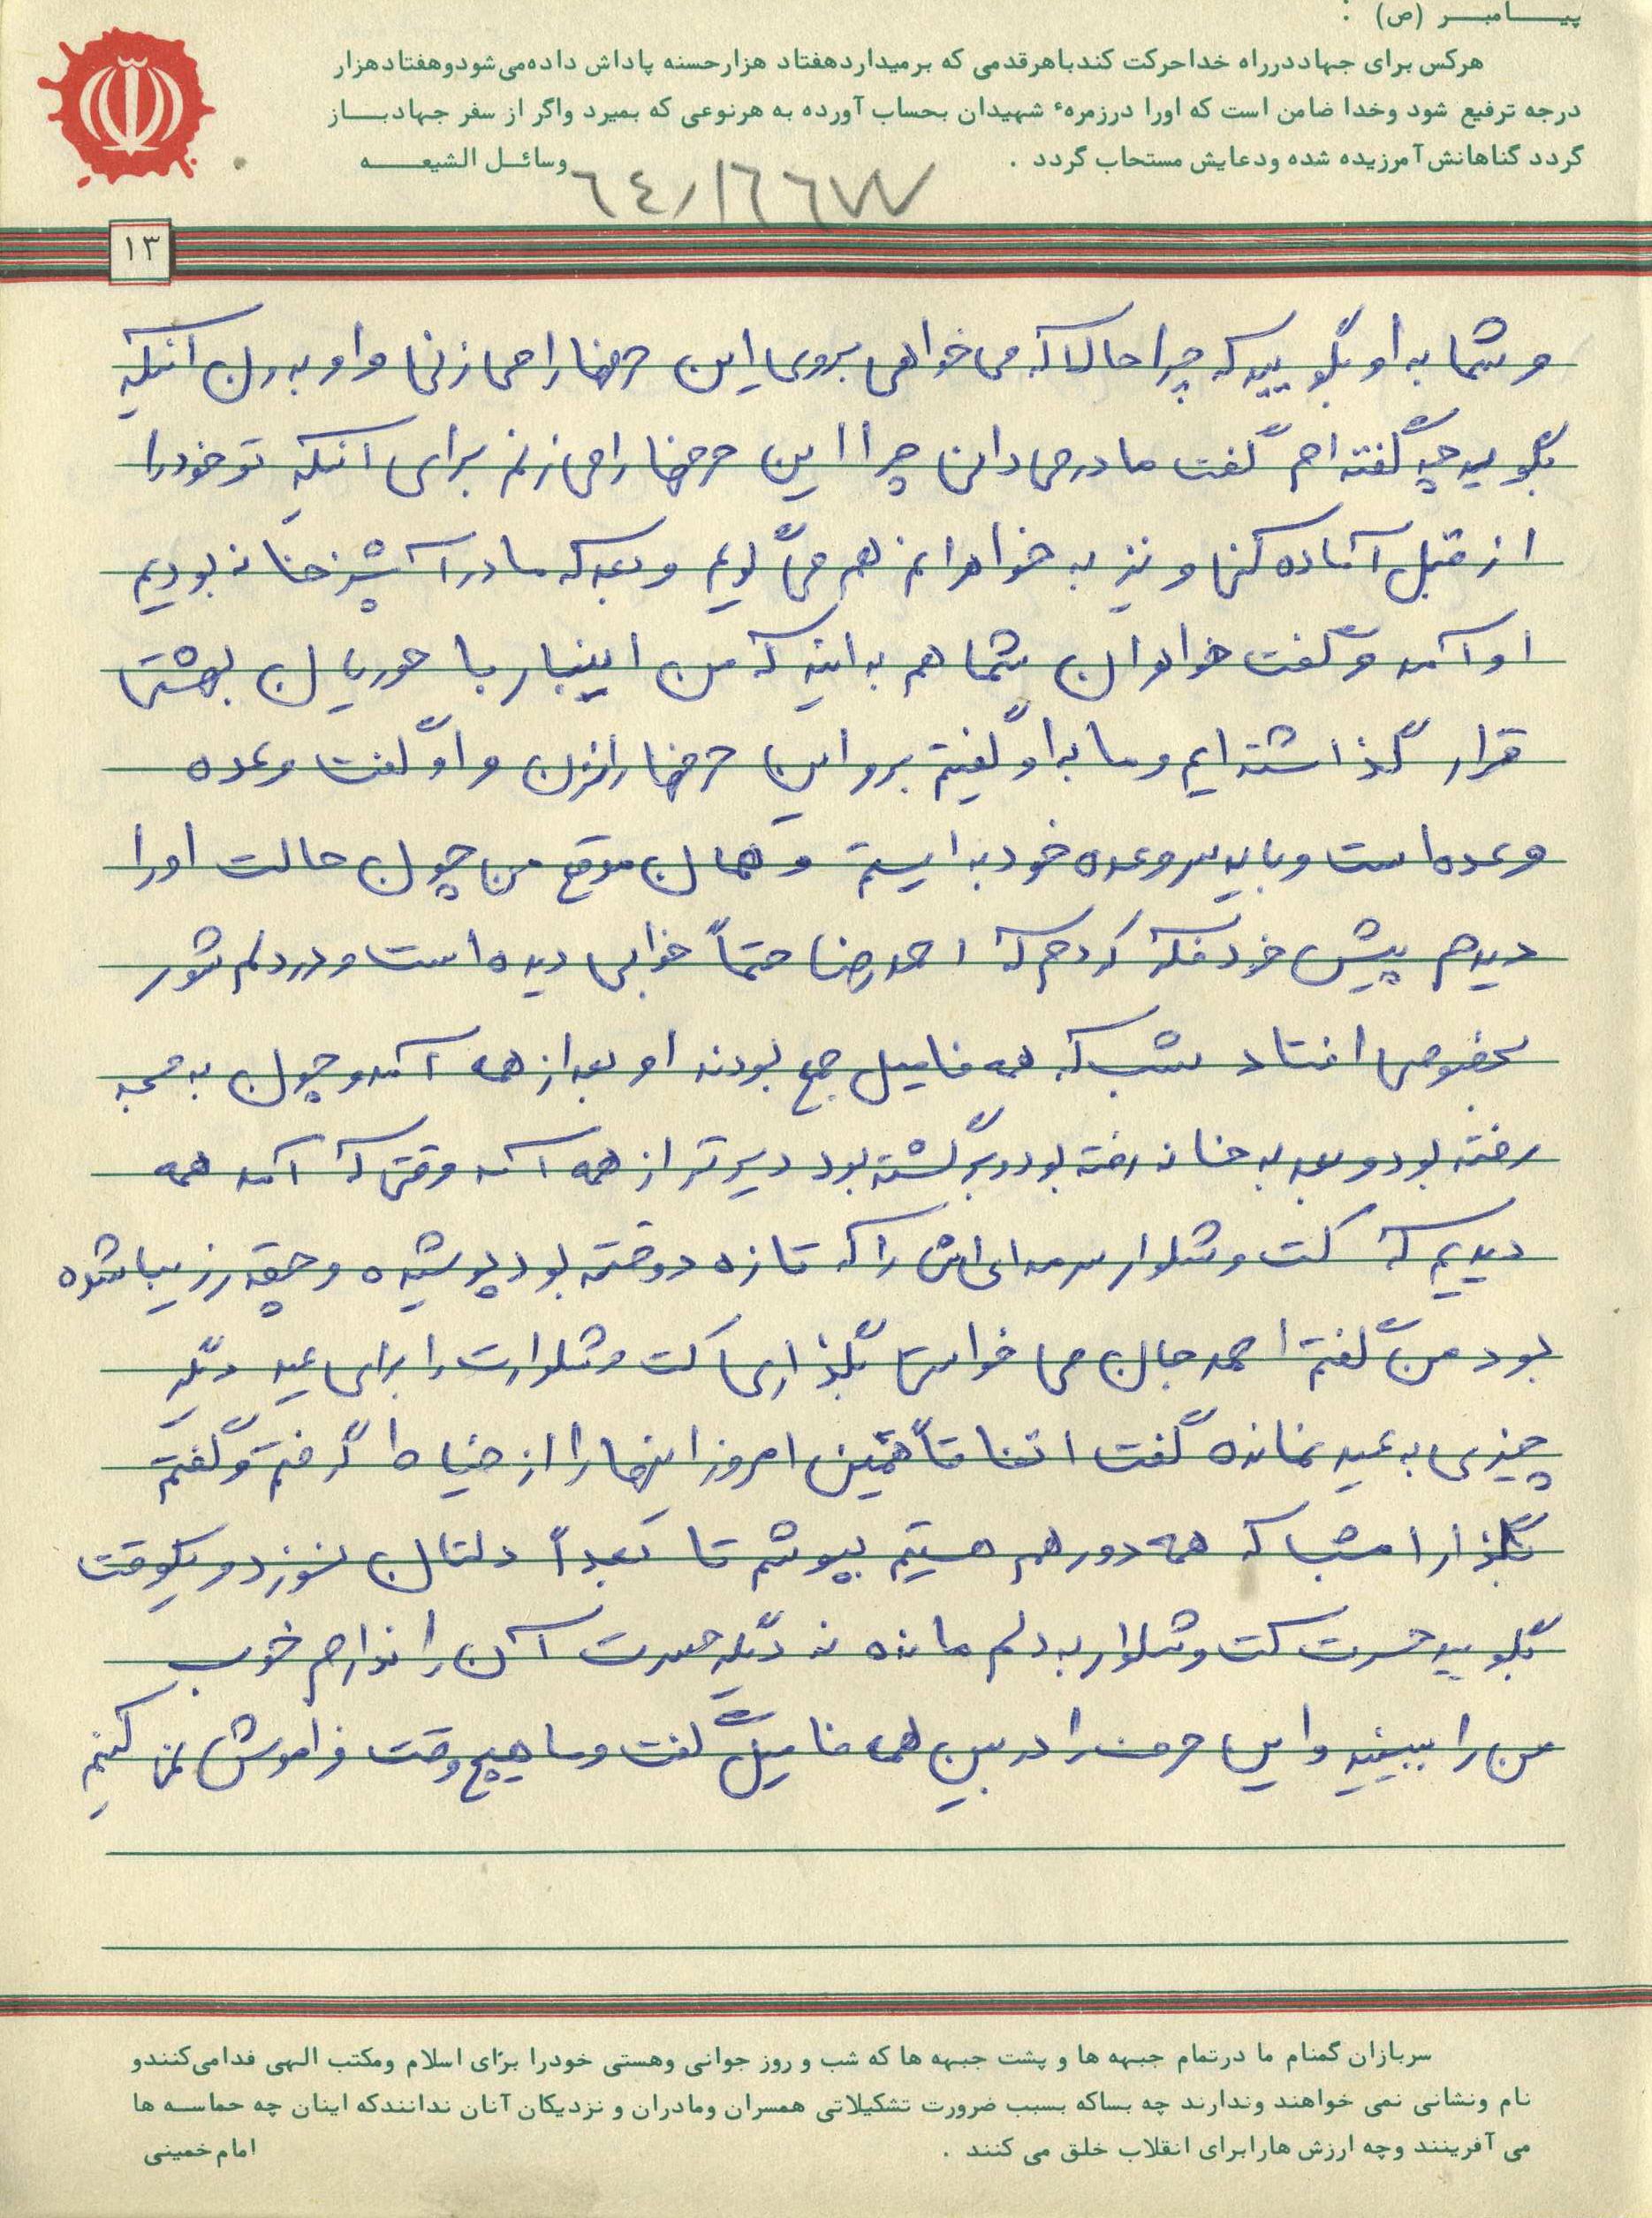 پیـــامبـــر (ص) :
هرکس برای جهاددرراه خداحرکت کندباهرقدمی که برمیداردهفتاد هزارحسنه پاداش داده‌می‌شودوهفتادهزار
درجه ترفیع شود وخدا ضامن است که اورا درزمرهٔ شهیدان بحساب آورده به هرنوعی که بمیرد واگر از سفر جهادبـــاز
گردد گناهانش آمرزیده شده ودعایش مستجاب گردد .
وسائــل الشیعــــه
٦٤/١٦٦٧٧
۱۳
و شما به او بگویید که چرا حالا که می خواهی بروی این حرفها را می زنی و او بدون آنکه
بگوید چه گفته ام گفت مادر می دانی چرا این حرفها را می زنم برای آنکه تو خود را
از قبل آماده کنی و نیز به خواهرانم هم می گویم و بعد که ما در آشپزخانه بودیم
او آمد و گفت خواهران شما هم بدانید که من اینبار با حوریان بهشتی
قرار گذاشته ایم و ما به او گفتیم برو این حرفها را نزن و او گفت وعده
وعده است و باید سر وعده خود به ایستم و همان موقع من چون حالت او را
دیدم پیش خود فکر کردم که احمدرضا حتماً خوابی دیده است و در دلم شور
بخصوصی افتاد شب که همه فامیل جمع بودند او بعد از همه آمد و چون به مسجد
رفته بود و بعد به خانه رفته بود و برگشته بود دیرتر از همه آمد وقتی که آمد همه
دیدیم که کت و شلوار سرمه ای اش را که تازه دوخته بود پوشیده و چقدر زیبا شده
بود من گفتم احمد جان می خواستی بگذاری کت و شلوارت را برای عید دیگر
چیزی به عید نمانده گفت اتفاقاً همین امروز اینها را از خیاط گرفتم و گفتم
بگذار امشب که همه دور هم هستیم بپوشم تا بعداً دلتان نسوزد و یکوقت
بگویید حسرت کت و شلوار به دلم مانده نه دیگر حسرت آن را ندارم خوب
من را ببینید و این حرف را در بین همه فامیل گفت و ما هیچ وقت فراموش نمی کنیم
سربازان گمنام ما درتمام جبهه ها و پشت جبهه ها که شب و روز جوانی وهستی خودرا برای اسلام ومکتب الهی فدامی‌کنندو
نام ونشانی نمی خواهند وندارند چه بساکه بسبب ضرورت تشکیلاتی همسران ومادران و نزدیکان آنان ندانندکه اینان چه حماسـه ها
می آفرینند وچه ارزش هارابرای انقلاب خلق می کنند .
امام خمینی